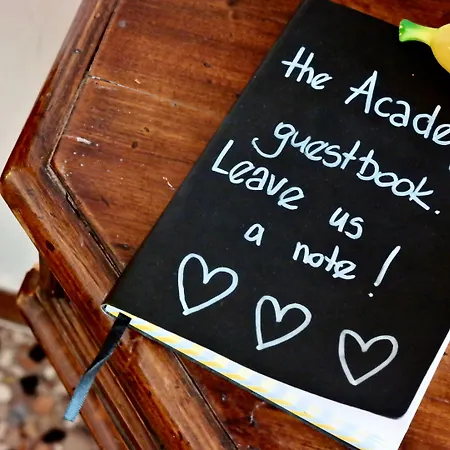 the Acade
guestbook.
Leave us
a note!